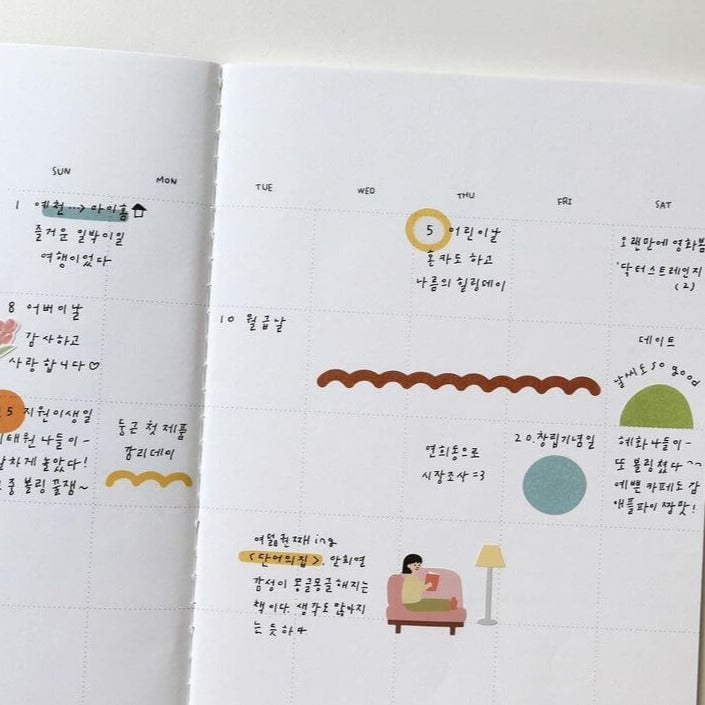 SUN
MON
TUE
WED
THU
FRI
SAT
1 예천 ···> 마이홈
즐거운 일박이일
여행이었다
5 어린이날
혼카도 하고
나름의 힐링데이
오랜만에 영화봄
'닥터스트레인지
(2)
8 어버이날
감사하고
사랑합니다♡
10 월급날
데이트
날씨도 so good
5 지원이생일
태원 나들이~
하게 놀았다!
중 볼링 꿀잼~
둥근 첫 제품
감리데이
연희동으로
시장조사=3
20.창립기념일
혜화나들이~
또 볼링쳤다^^
예쁜 카페도 감
애플파이 짱맛!
여덟권째 ing
<단어의집>. 안희연
감성이 몽글몽글해지는
책이다. 생각도 많아지
는 듯하다